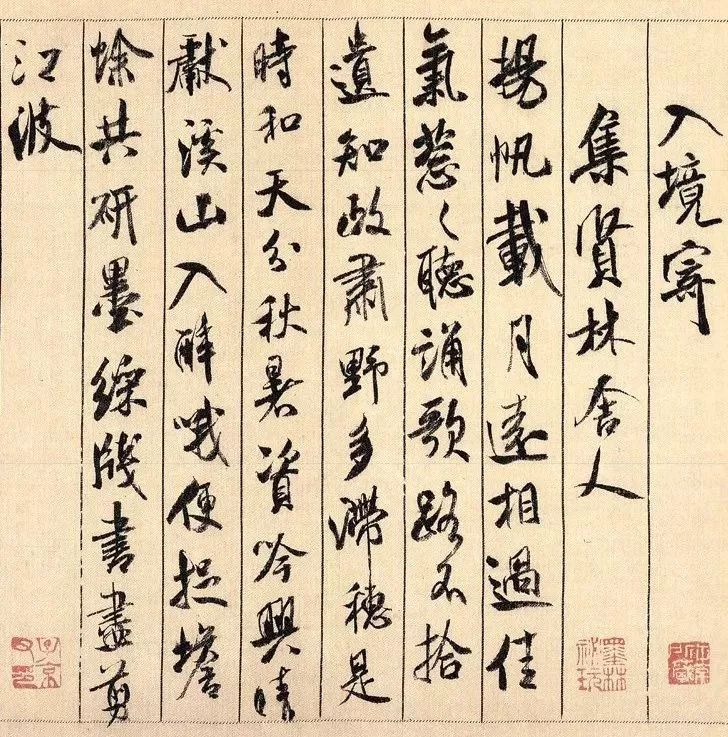 入境寄
集賢林舍人
揚帆載月遠相過佳
氣葱々聽誦歌路不拾
遺知政肅野多滯穗是
時和天分秋暑資吟興晴
獻溪山入醉哦便捉蟾
蜍共研墨綵牋書盡剪
江波
墨林祕玩
子京父印